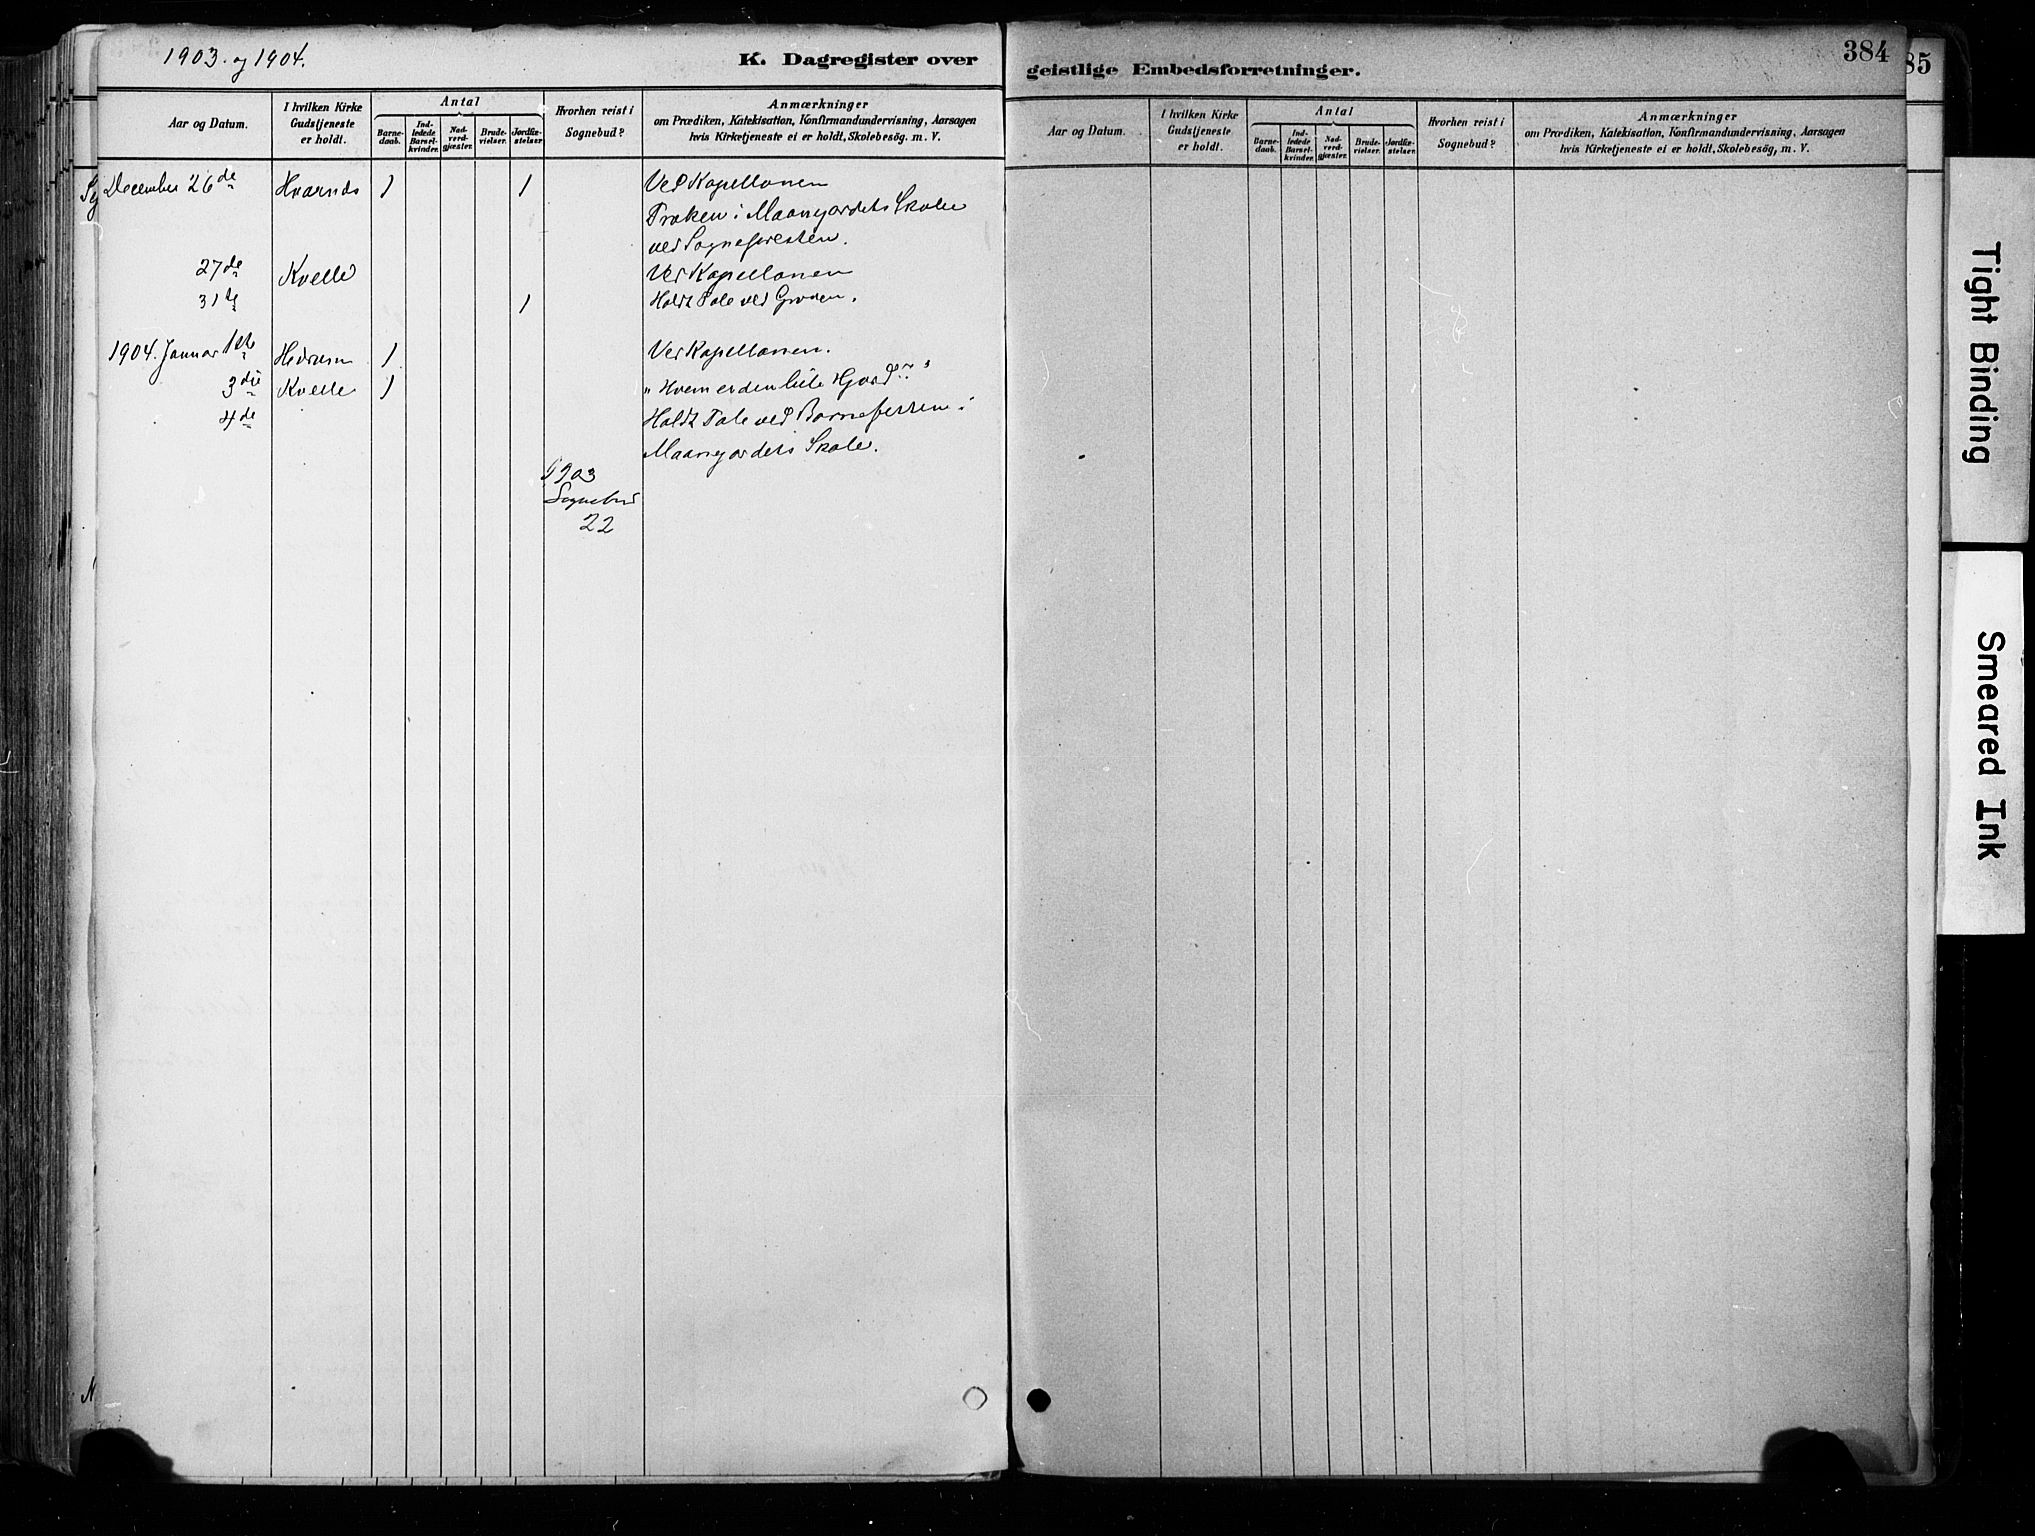 1903. og 1904.
K. Dagregister over
Aar og Datum.
I hvilken Kirke Gudstjeneste er holdt.
Antal
Barne-daab.
Ind-ledede Barsel-kvinder.
Nad-verd-gjæster.
Brude-vielser.
Jordfæ-stelser
Hvorhen reist i Sognebud?
Anmærkninger
om Prædiken, Katekisation, Konfirmandundervisning, Aarsagen
hvis Kirketjeneste ei er holdt, Skolebesög. m. V.
December 26de Hvarnds 1 1 Ved Kapellanen
i Maangardets Skole
ved Sognepresten.
27de Kvelle Ved Kapellanen
31te 1 Holdt Tale ved Graven.
1904. Januar 1ste Hedrum 1 Ved Kapellanen.
3die Kvelle 1 "Hvem er den lille Hjord?"
4de Holdt Tale ved Barnefesten i
Maangardets Skole.
1903
Sognebud
22
geistlige Embedsforretninger.
384
85
Aar og Datum.
I hvilken Kirke Gudstjeneste er holdt.
Antal
Barne-daab.
Ind-ledede Barsel-kvinder.
Nad-verd-gjæster.
Brude-vielser.
Jordfæ-stelser.
Hvorhen reist i Sognebud?
Anmærkninger
om Prædiken, Katekisation, Konfirmandundervisning, Aarsagen
hvis Kirketjeneste ei er holdt, Skolebesög, m. V.
Tight Binding
Smeared Ink